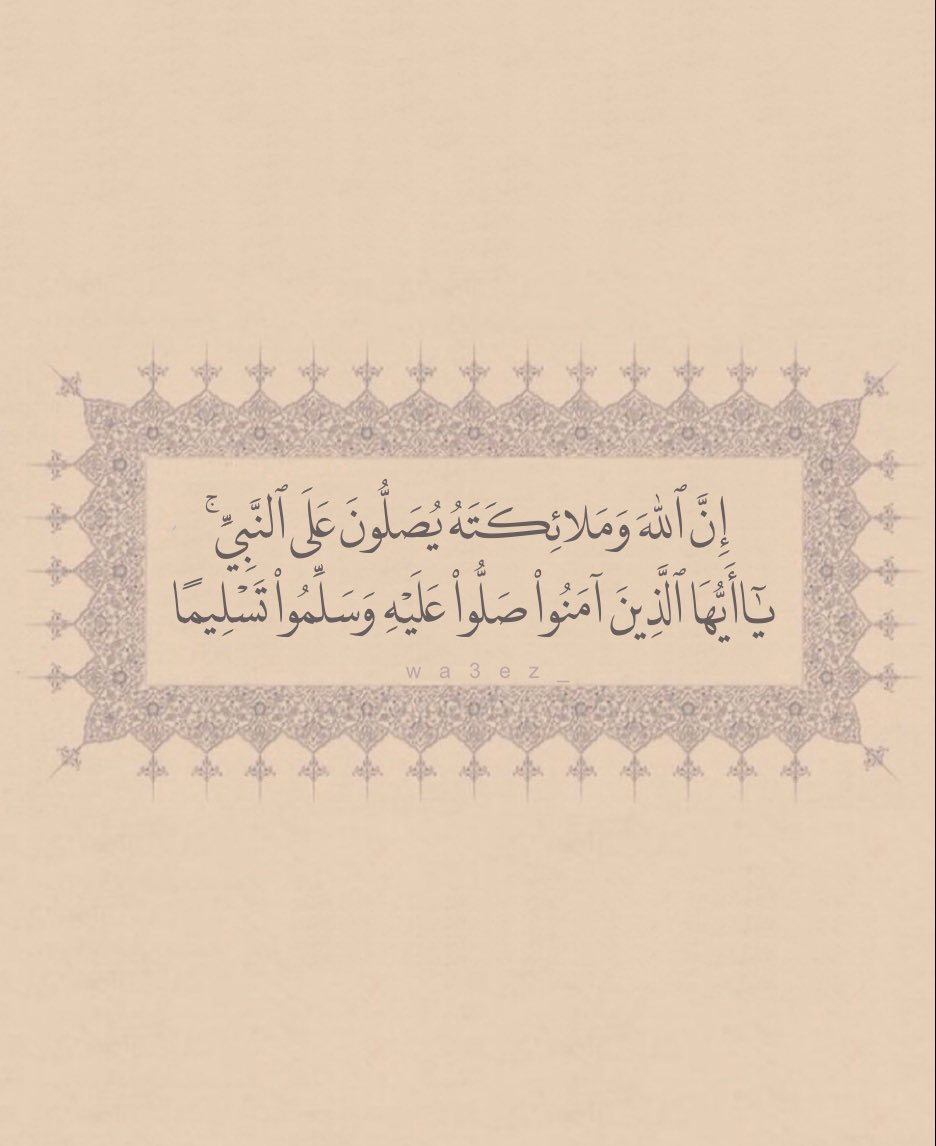 إِنَّ ٱللهَ وَمَلائِكَتَهُ يُصَلُّونَ عَلَى ٱلنَّبِيِّ ۚ
يَٰٓاأَيُّهَا ٱلَّذِينَ آمَنُواْ صَلُّواْ عَلَيْهِ وَسَلِّمُواْ تَسْلِيمًا
wa3ez_